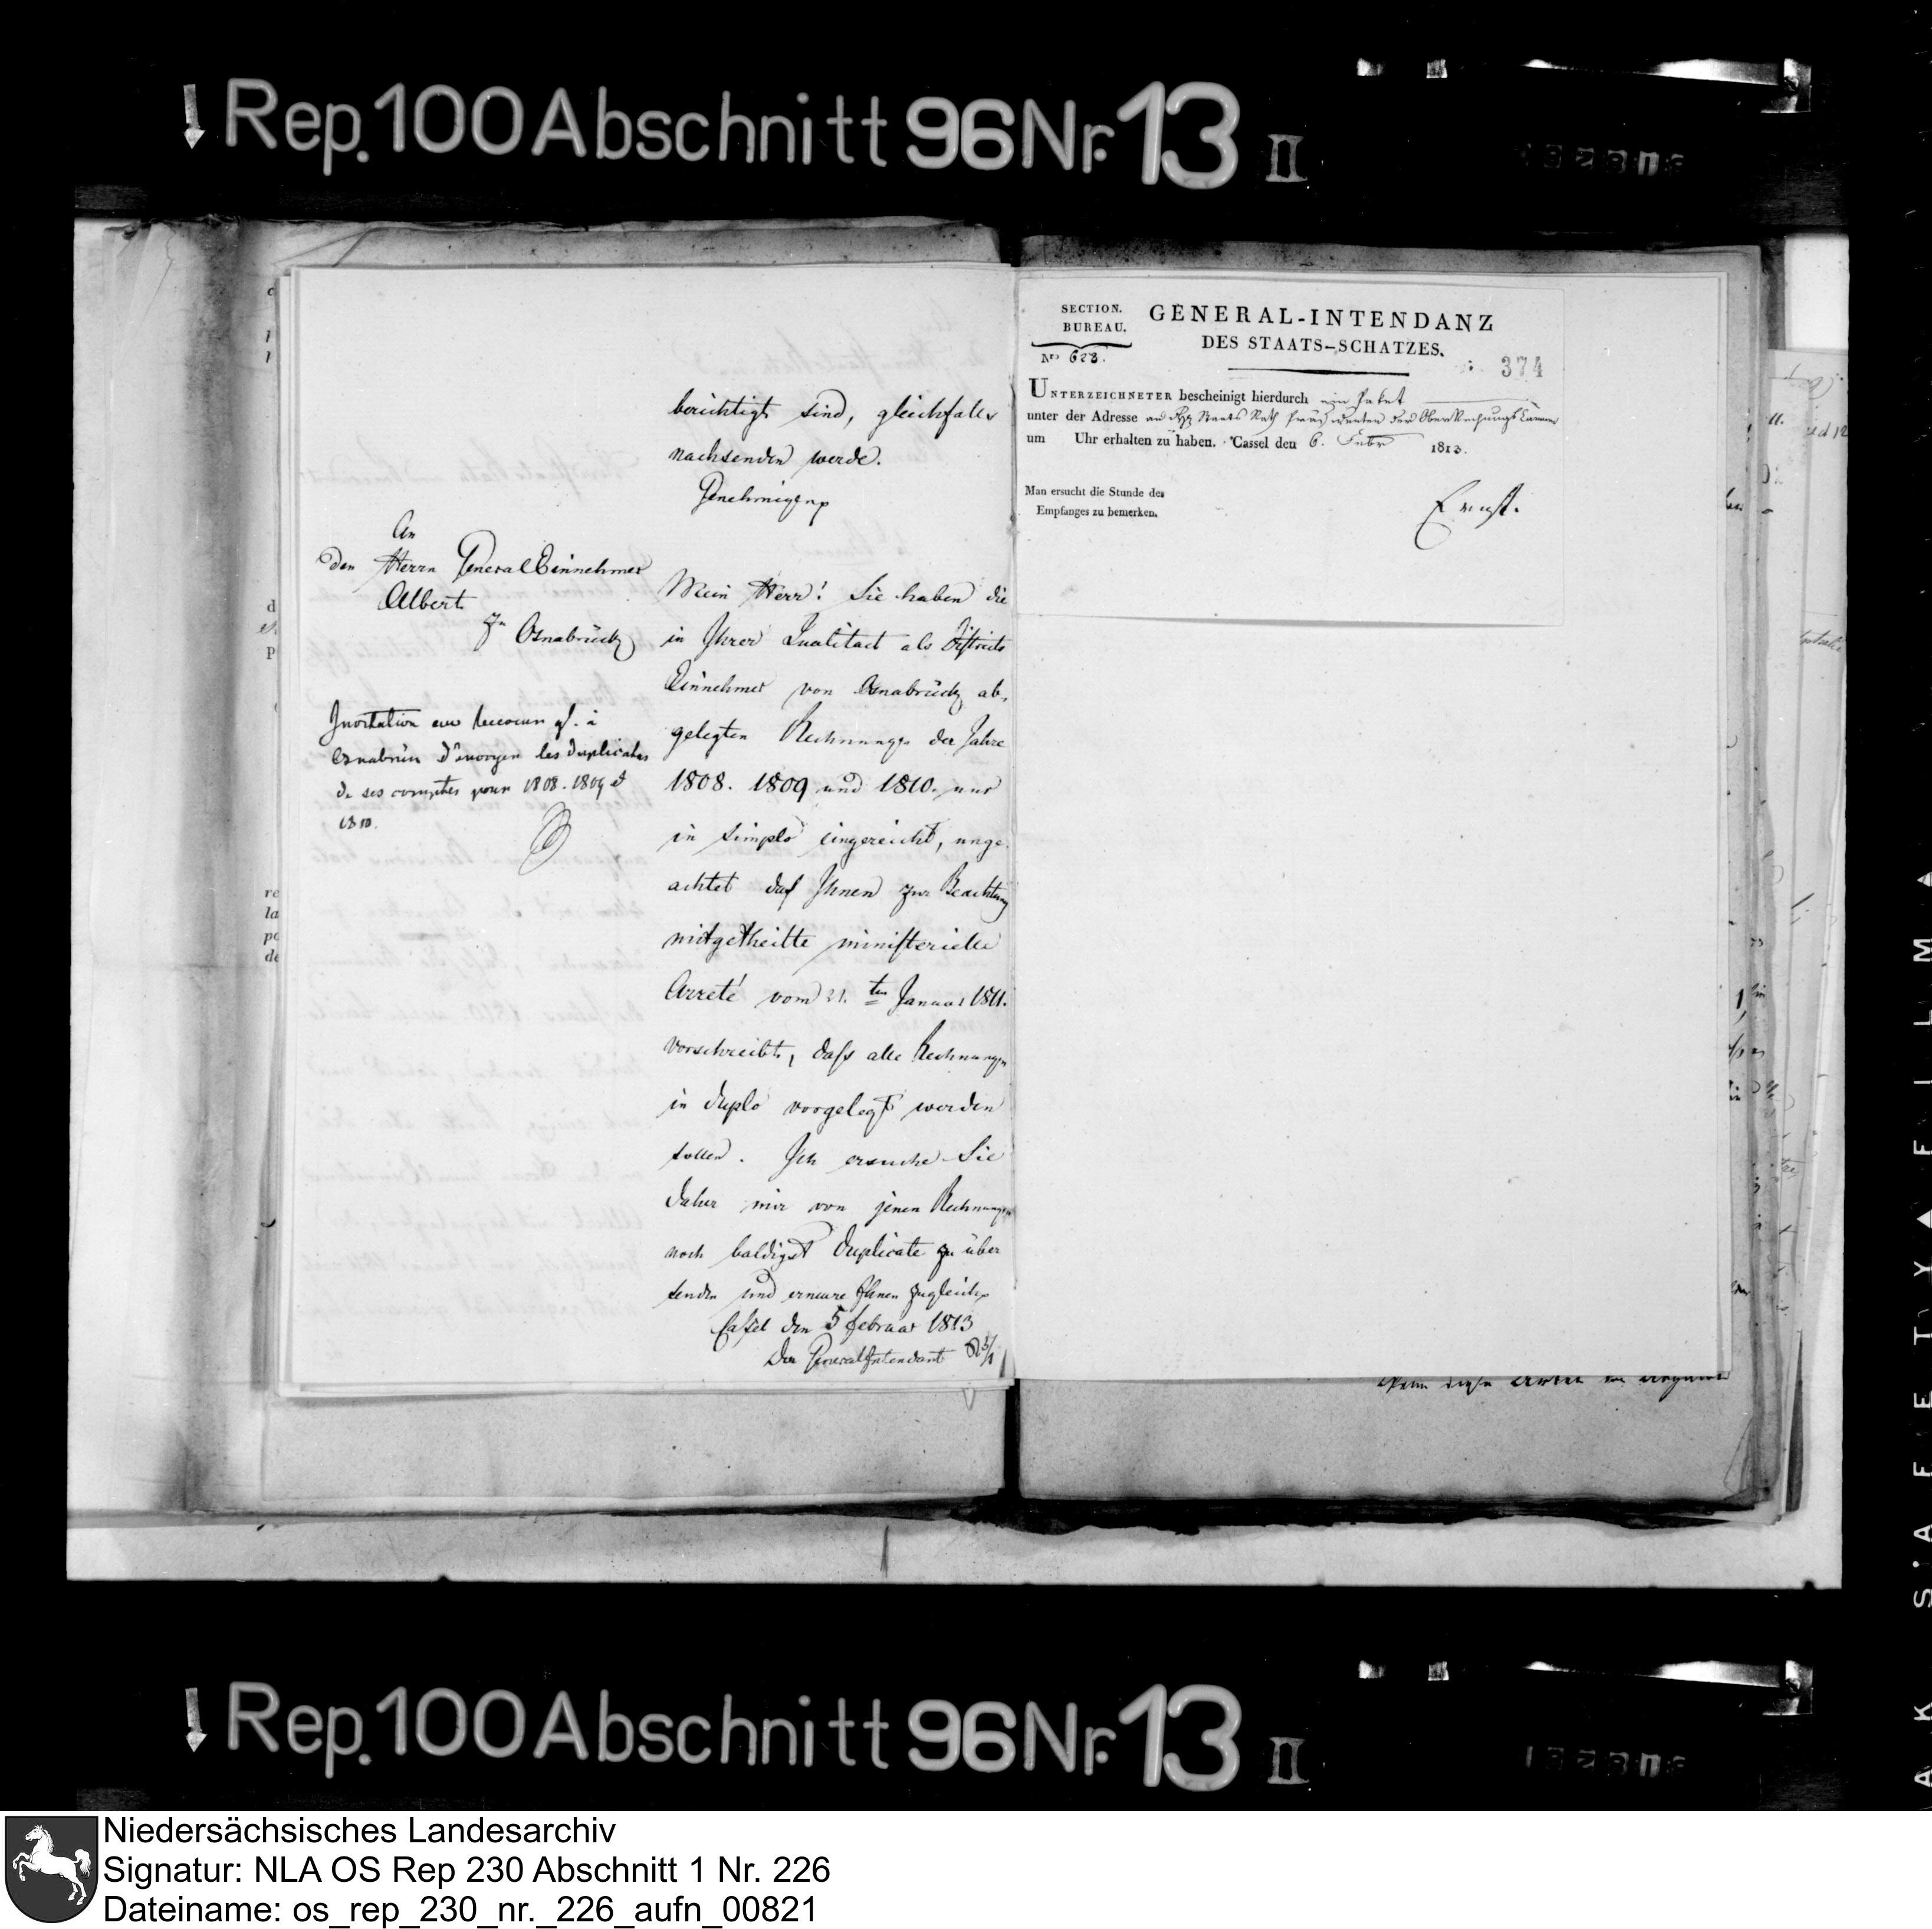 Rep. 100 Abschnitt 96 Nr. 13 II
berichtigt sind, gleichfalls
nachsenden werde.
Genehmigen p
An
den Herrn General Einnehmer
Albert
zu Osnabrück
Invitation au receveur gl. à
Osnabrück d'envoyer les duplicates
de ses comptes pour 1808. 1809 et
1810.
Mein Herr! Sie haben die
in Ihrer Qualitaet als Districts
Einnehmer von Osnabrück ab-
gelegten Rechnungen der Jahre
1808. 1809 und 1810. nur
in simplo eingereicht, unge-
achtet das Ihnen zur Beachtung
mitgetheilte ministerielle
Arreté vom 21.ten Januar 1811.
vorschreibt, dass alle Rechnungen
in duplo vorgelegt werden
sollen. Ich ersuche Sie
daher mir von jenen Rechnungen
noch baldigst Duplicate zu über
senden und erneure Ihnen zugleich p
Cassel den 5 Februar 1813
Der General Intendant
SECTION.
BUREAU.
Nro 623.
GENERAL-INTENDANZ
DES STAATS-SCHATZES.
374
UNTERZEICHNETER bescheinigt hierdurch ein Paket
unter der Adresse an Staats Rath Präsidenten der Ober Rechnungs Cammer
um Uhr erhalten zu haben. Cassel den 6. Febr 1813.
Man ersucht die Stunde des
Empfanges zu bemerken.
Ernst.
Rep. 100 Abschnitt 96 Nr. 13 II
AK SAFETY FILM
Niedersächsisches Landesarchiv
Signatur: NLA OS Rep 230 Abschnitt 1 Nr. 226
Dateiname: os_rep_230_nr._226_aufn_00821